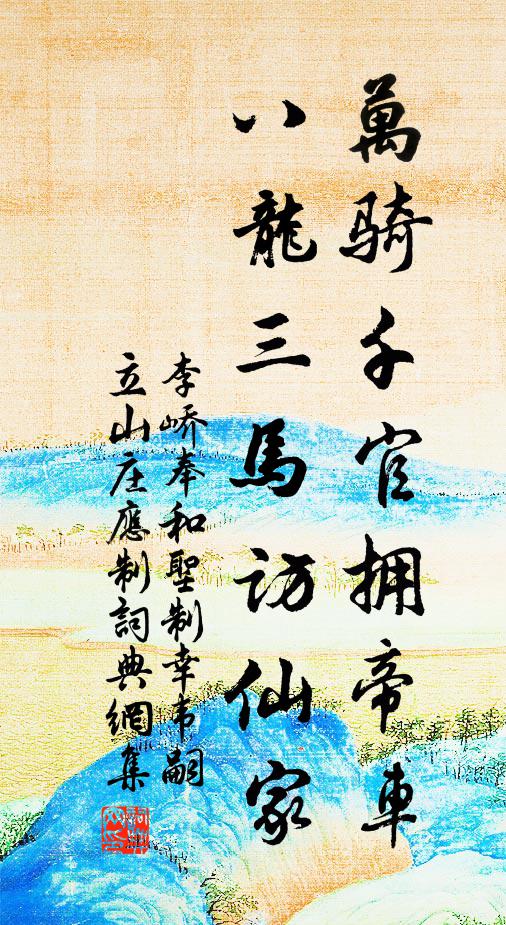 萬騎千官拥帝車
八龍三馬访仙家
李峤奉和聖制幸韦嗣
立山庄應制詞典網集